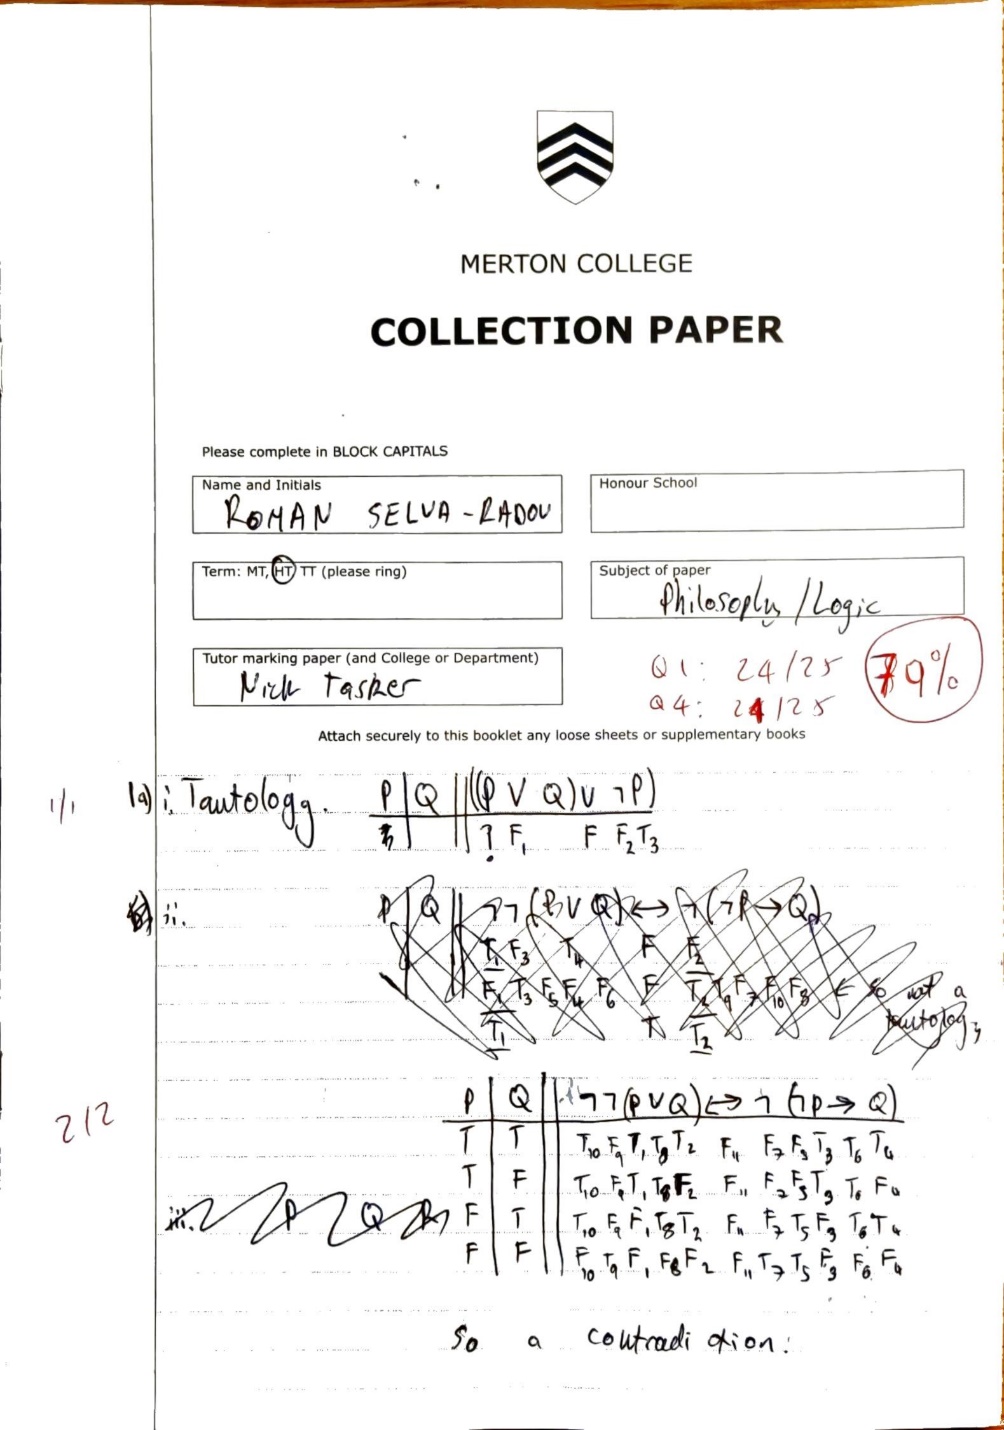 MERTON COLLEGE
COLLECTION PAPER
Please complete in BLOCK CAPITALS
Name and Initials
ROMAN SELVA-RADOV
Honour School
Term: MT, HT, TT (please ring)
Subject of paper
Philosophy /Logic
Tutor marking paper (and College or Department)
Nick Tasker
Q1: 24/25
Q4: 21/25
79%
Attach securely to this booklet any loose sheets or supplementary books
1/1
1a) i. Tautology.
P Q ((P ∨ Q) ∨ ¬P)
? F₁ F F₂ T₃
ii.
P Q ¬¬(P ∨ Q) ↔ ¬(¬P → Q)
T₁ F₃ T₄ F F₂
F₁ T₃ F₅ F₄ F₆ F T₂ T₉ F₇ F₁₀ F₈ ← so not a tautology
T₁ T T₂
2/2
P Q ¬¬(P ∨ Q) ↔ ¬(¬P → Q)
T T T₁₀ F₉ T₁ T₈ T₂ F₁₁ F₇ F₅ T₃ T₆ T₄
T F T₁₀ F₉ T₁ T₈ F₂ F₁₁ F₇ F₅ T₃ T₆ F₄
iii. P Q
F T T₁₀ F₉ F₁ T₈ T₂ F₁₁ F₇ T₅ F₃ T₆ T₄
F F F₁₀ T₉ F₁ F₈ F₂ F₁₁ T₇ T₅ F₃ F₆ F₄
So a contradiction.